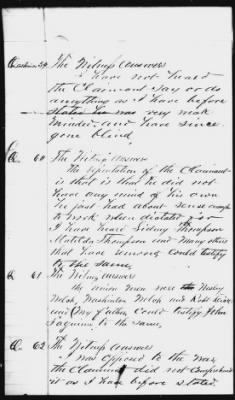 Question 59 The Witness Answers
I have not heard
the Claimant say or do
anything as I have before
stated he was very weak
minded and have since
gone blind
Q 60 The Witness Answers
The reputation of the Claimant
is that is that he did not
have any mind of his own
he just had about sense enough
to work when dictated
I have heard Sidney Thompson
Matilda Thompson and Many others
that have could testify
to the same
Q 61 The Witness Answers
the union men were Wesley
Welch, Washington Welch and
and My father Could testify John
to the same,
Q 62 The Witness Answers
I was opposed to the war,
the Claimant did not Comprehend
it as I have before stated.